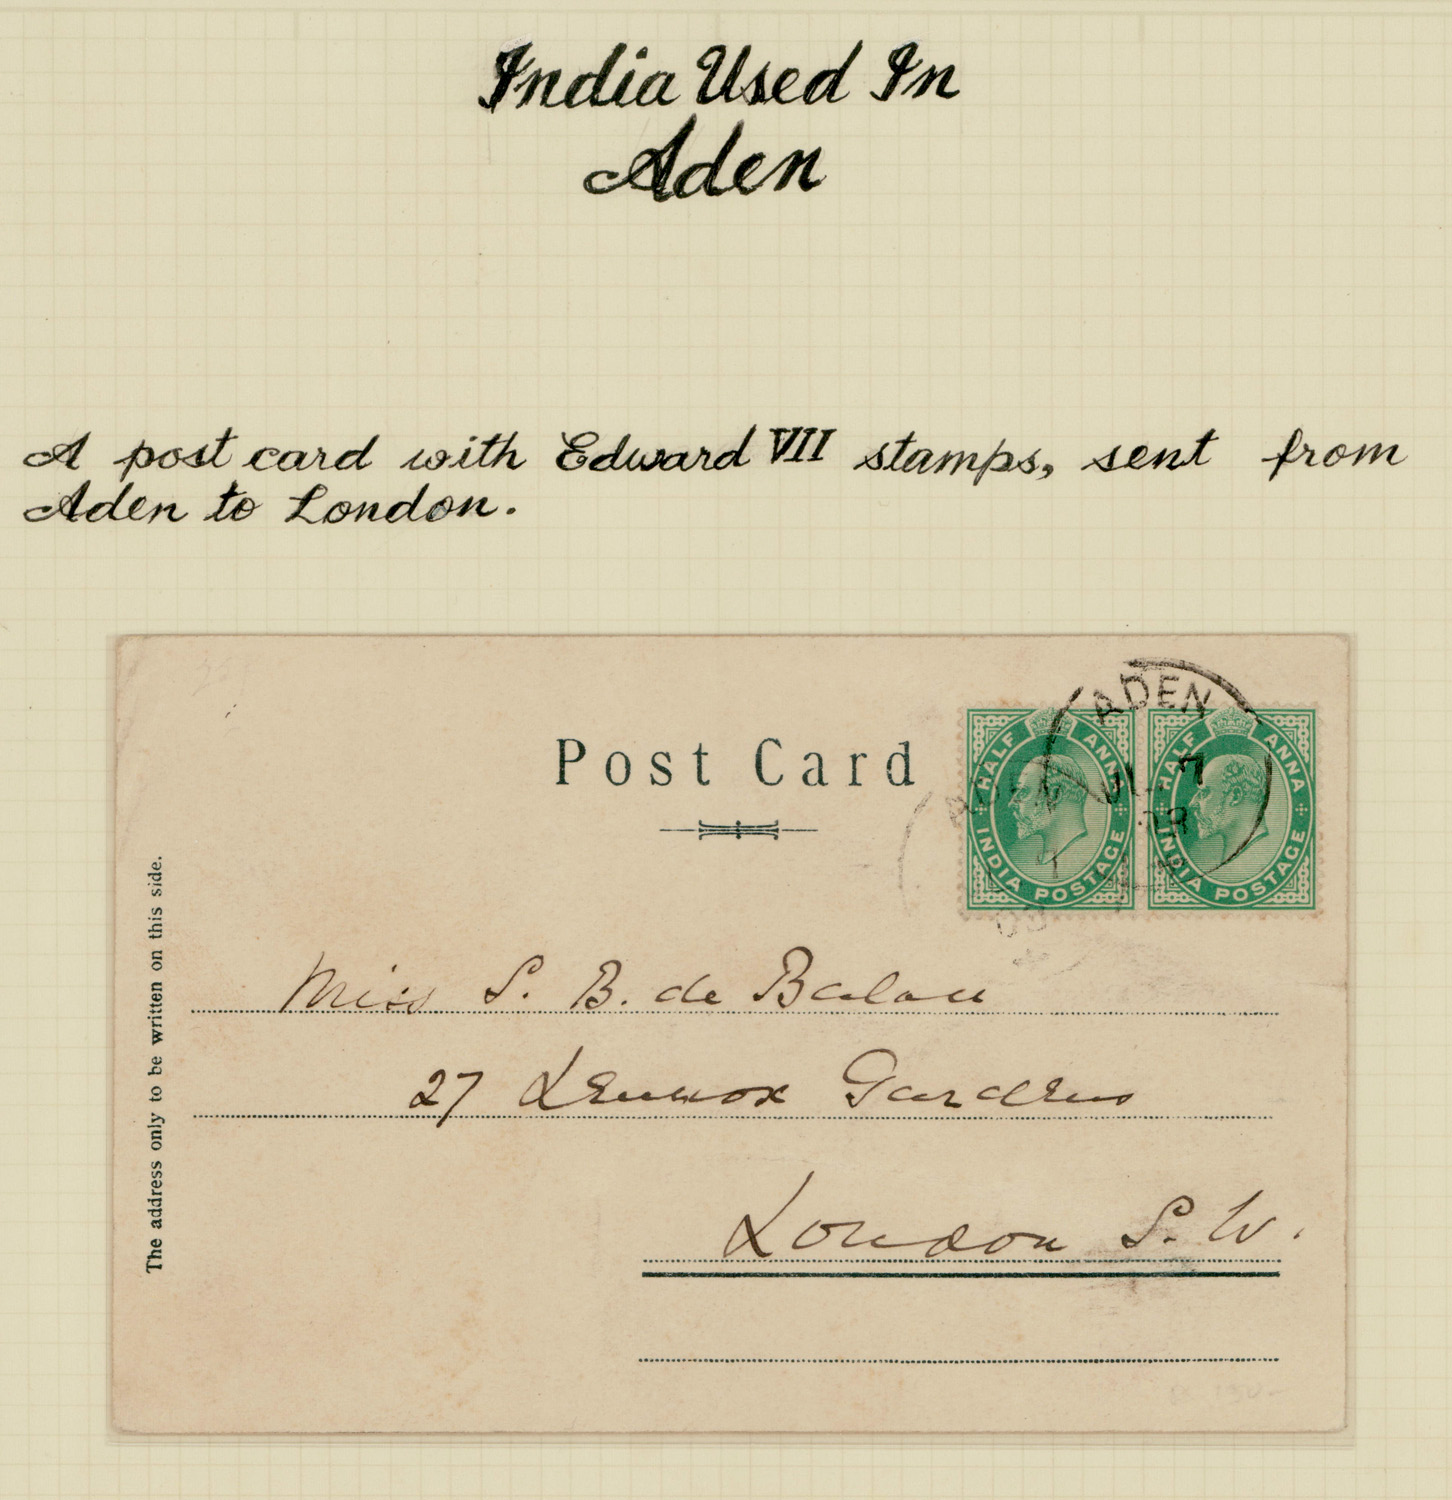 India Used In
Aden
A post card with Edward VII stamps, sent from
Aden to London.
ADEN
JL 7
HALF ANNA
INDIA POSTAGE
HALF ANNA
INDIA POSTAGE
Post Card
The address only to be written on this side.
Miss S. B. de
27 Lennox Gardens
London S.W.